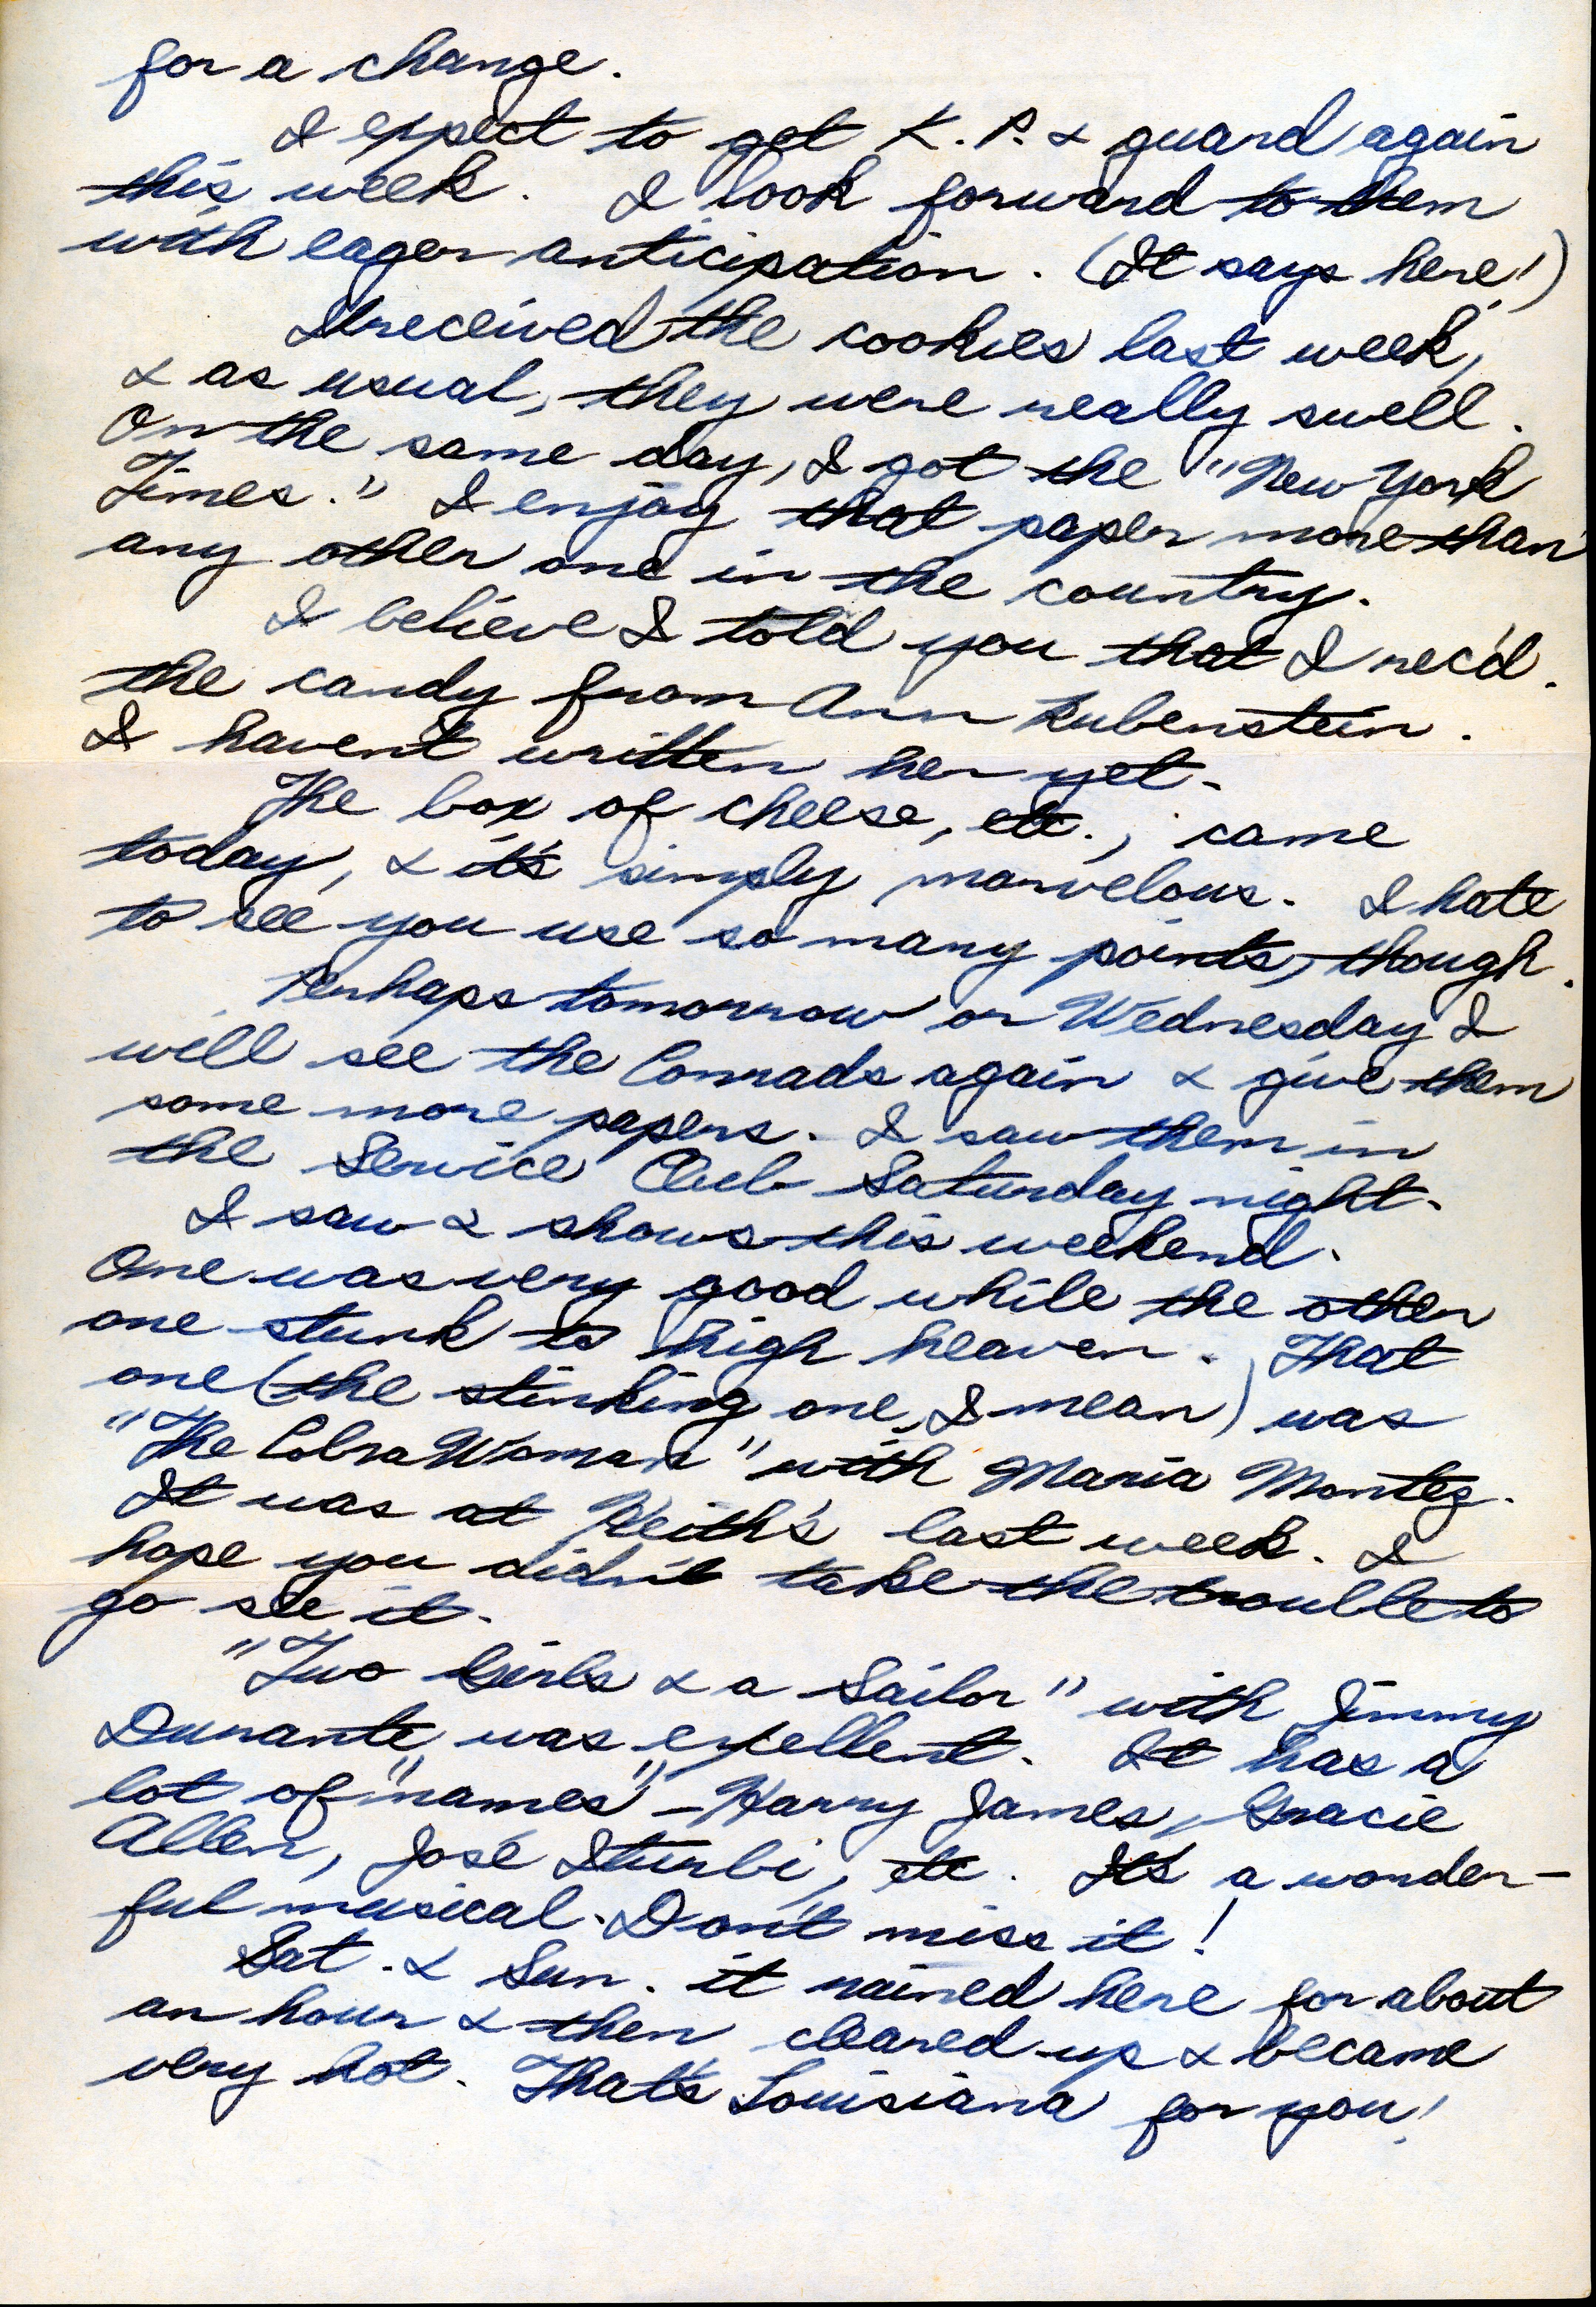 for a change.
I expect to get K.P. & guard again
this week. I look forward to them
with eager anticipation. (It says here!)
I received the cookies last week,
& as usual, they were really swell.
On the same day, I got the "New York
Times." I enjoy that paper more than
any other one in the country.
I believe I told you that I rec'd.
the candy from Ann Rubenstein.
I haven't written her yet.
The box of cheese, etc., came
today, & it's simply marvelous. I hate
to see you use so many points, though.
Perhaps tomorrow or Wednesday I
will see the Conrads again & give them
some more papers. I saw them in
the Service Club Saturday night.
I saw 2 shows this weekend.
One was very good while the other
one stunk to high heaven. That
one (the stinking one, I mean) was
"The Cobra Woman" with Maria Montez.
It was at Keith's last week. I
hope you didn't take the trouble to
go see it.
"Two Girls & a Sailor" with Jimmy
Durante was excellent. It has a
lot of "names" – Harry James, Gracie
Allen, José Iturbi, etc. It's a wonder-
ful musical. Don't miss it!
Sat. & Sun. it rained here for about
an hour & then cleared up & became
very hot. That's Louisiana for you!